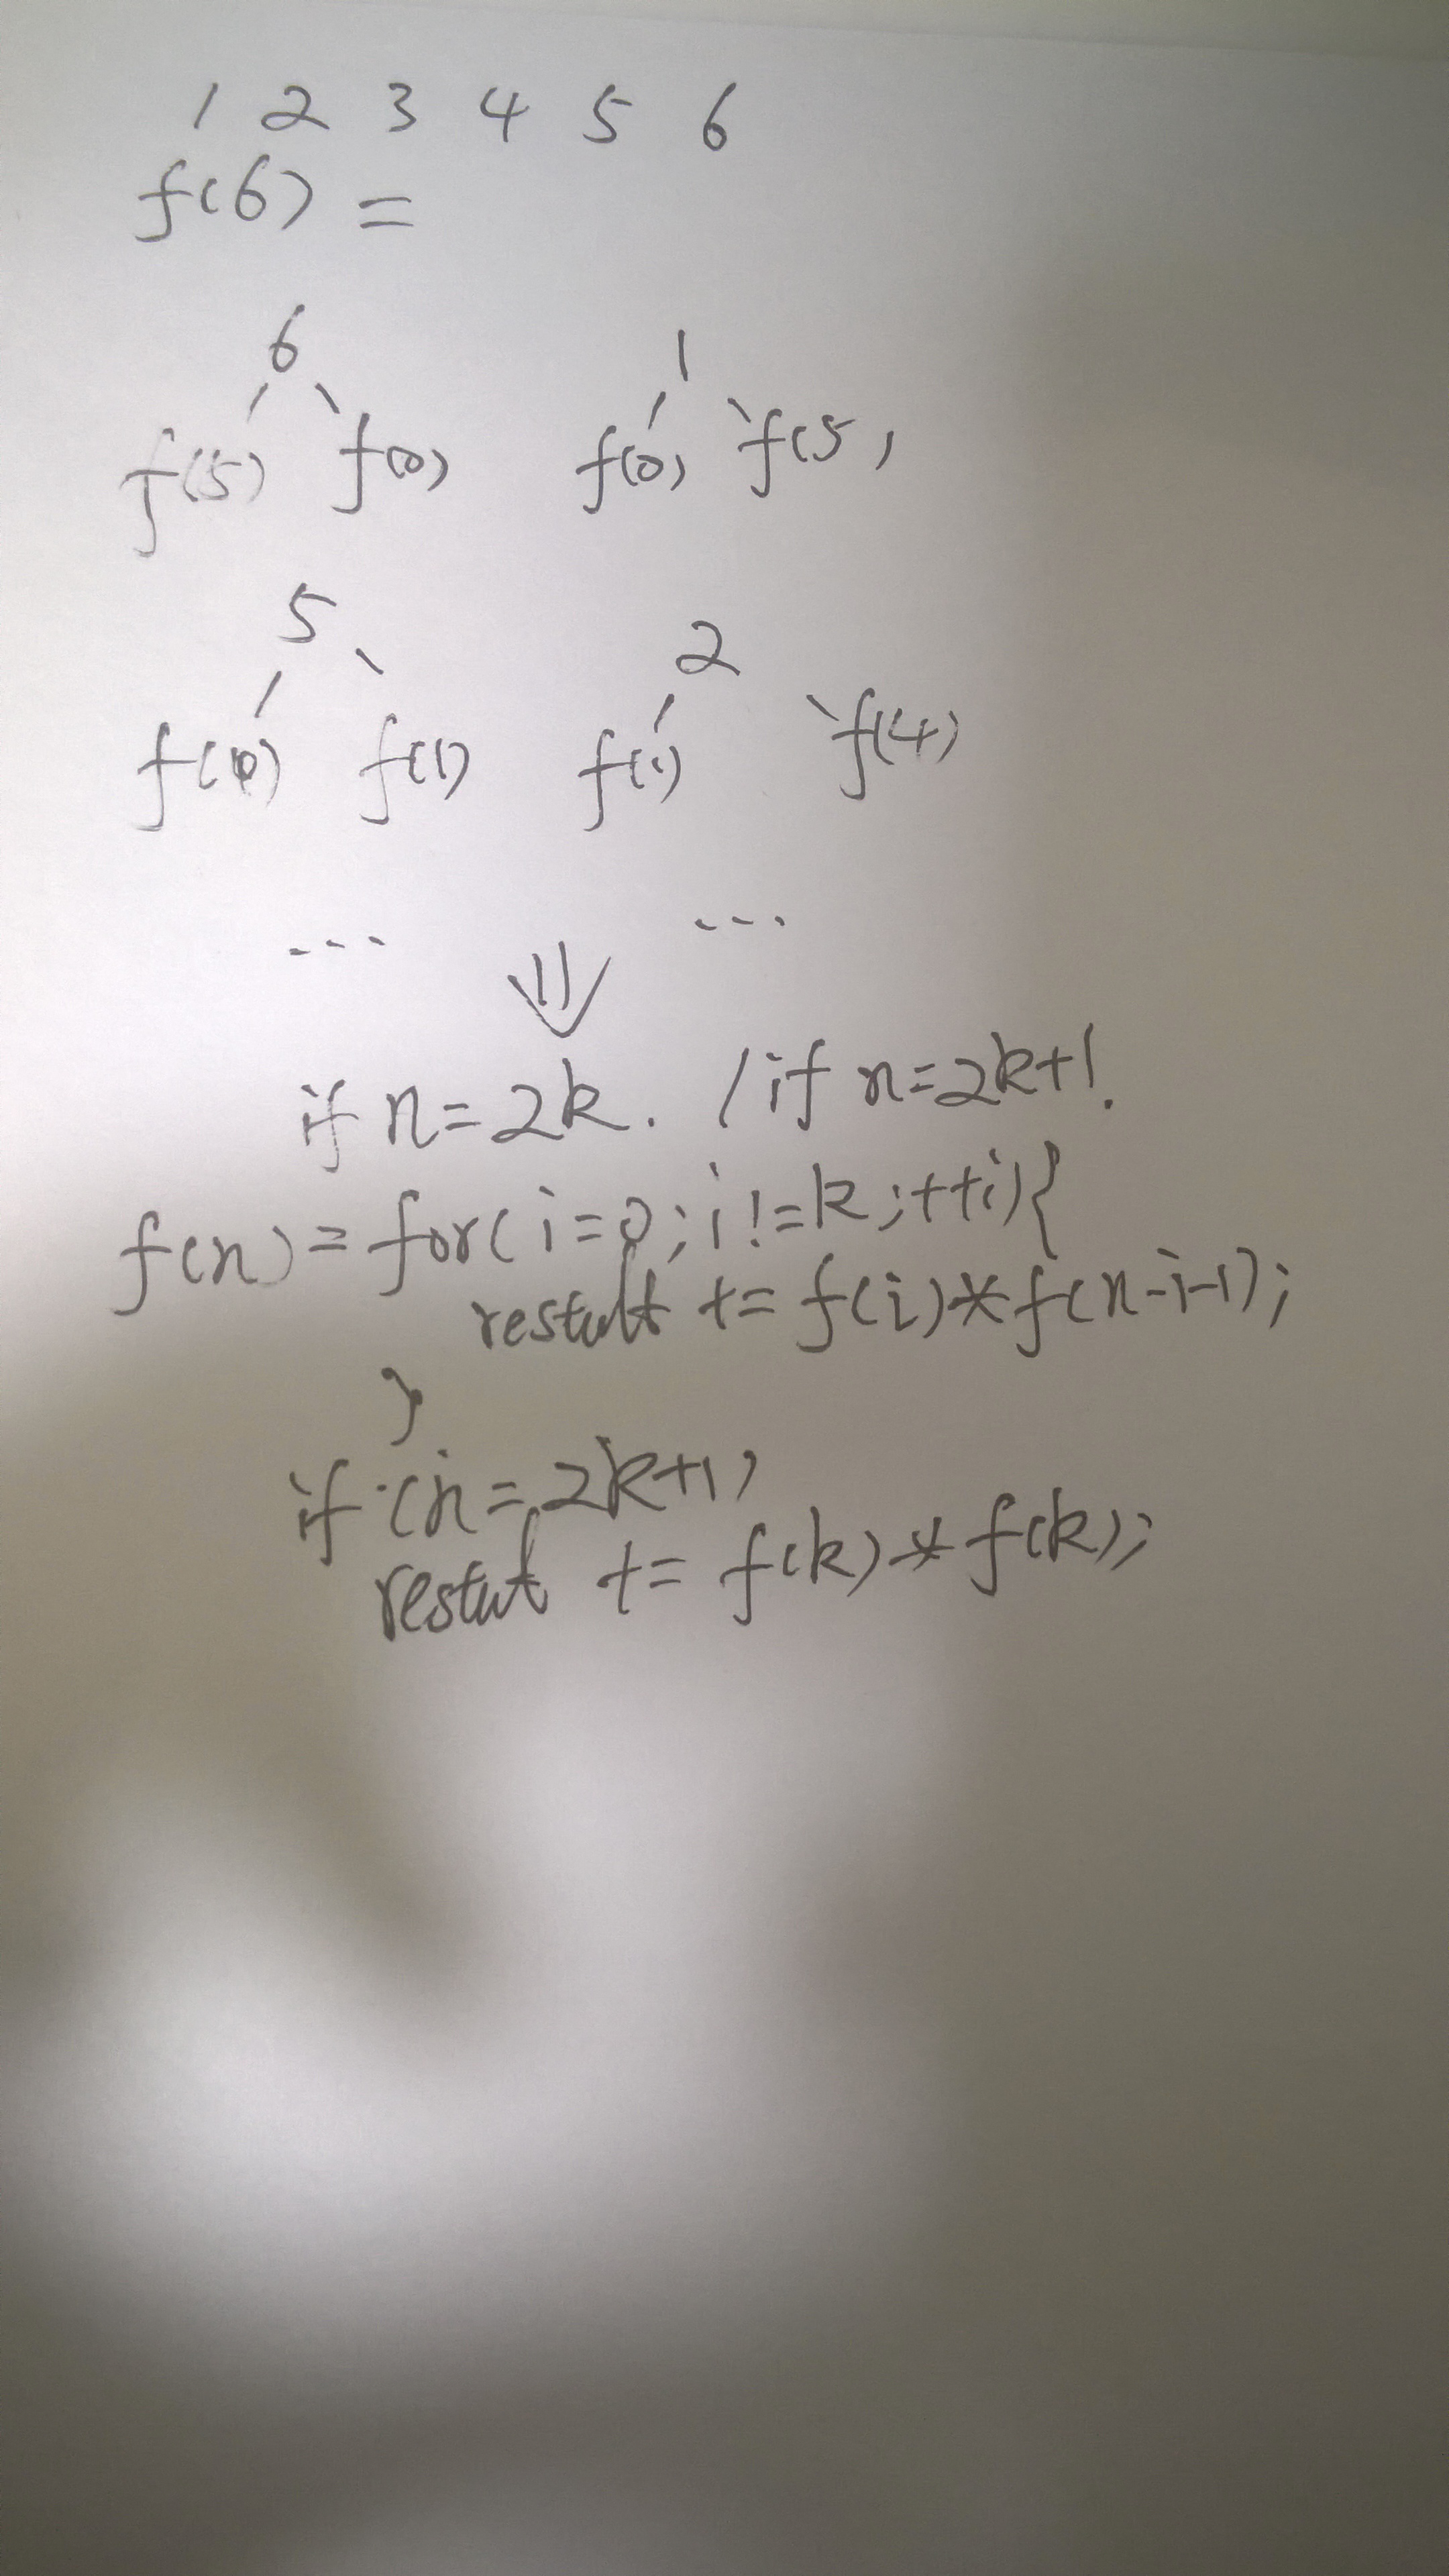 1 2 3 4 5 6
f(6) =
6 1
f(5) f(0) f(0) f(5)
5 2
f(1) f(1) f(4)
... ...
if n=2k. / if n=2k+1.
f(n) = for(i=0;i!=k;++i){
restult += f(i)*f(n-i-1);
}
if (n=2k+1)
restut += f(k)*f(k);